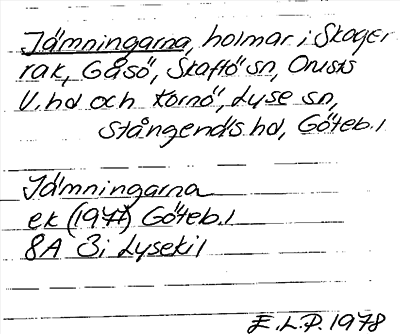 Jämningarna, holmar i Skager
rak, Gåsö, Skaftö sn, Orusts
V. hd och Kornö, Lyse sn,
Stångenäs hd, Göteb. l
Jämningarna
ek (1971) Göteb. l
8A 3i Lysekil
E.L.P. 1978